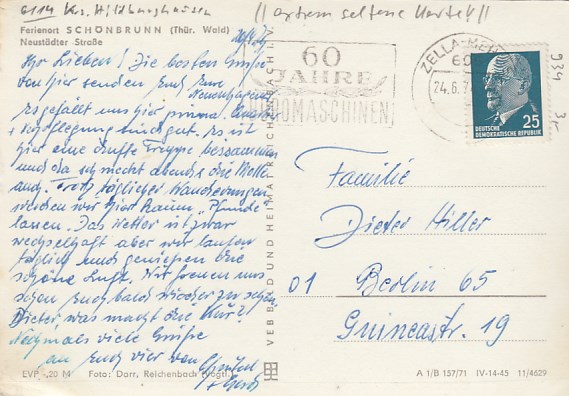 6114 Krs. Hildburghausen
//extrem seltene Karte!!//
Ferienort SCHÖNBRUNN (Thür. Wald)
Neustädter Straße
Ihr Lieben! Die besten Grüße
von hier senden Euch Eure
Es gefällt uns hier prima.
Verpflegung sind gut. Es ist
hier eine dufte Truppe beisammen
und da schmeckt abends die Molle
auch. Trotz täglicher Wanderungen
werden wir hier kaum "Pfunde"
lassen. Das Wetter ist zwar
wechselhaft aber wir laufen
täglich und genießen die
schöne Luft. Wir freuen uns
schon Euch bald wieder zu sehen.
Dieter was macht die Kur?
Nochmals viele Grüße
an Euch vier von
EVP -,20 M Foto: Darr, Reichenbach (Vogtl.)
VEB BILD UND HEIMAT REICHENBACH I. V.
60
JAHRE
BÜROMASCHINEN
ZELLA-MEH
60
24.6.7
25
DEUTSCHE
DEMOKRATISCHE REPUBLIK
934
3,-
Familie
Dieter Hiller
01 Berlin 65
Guineastr. 19
A 1/B 157/71 IV-14-45 11/4629